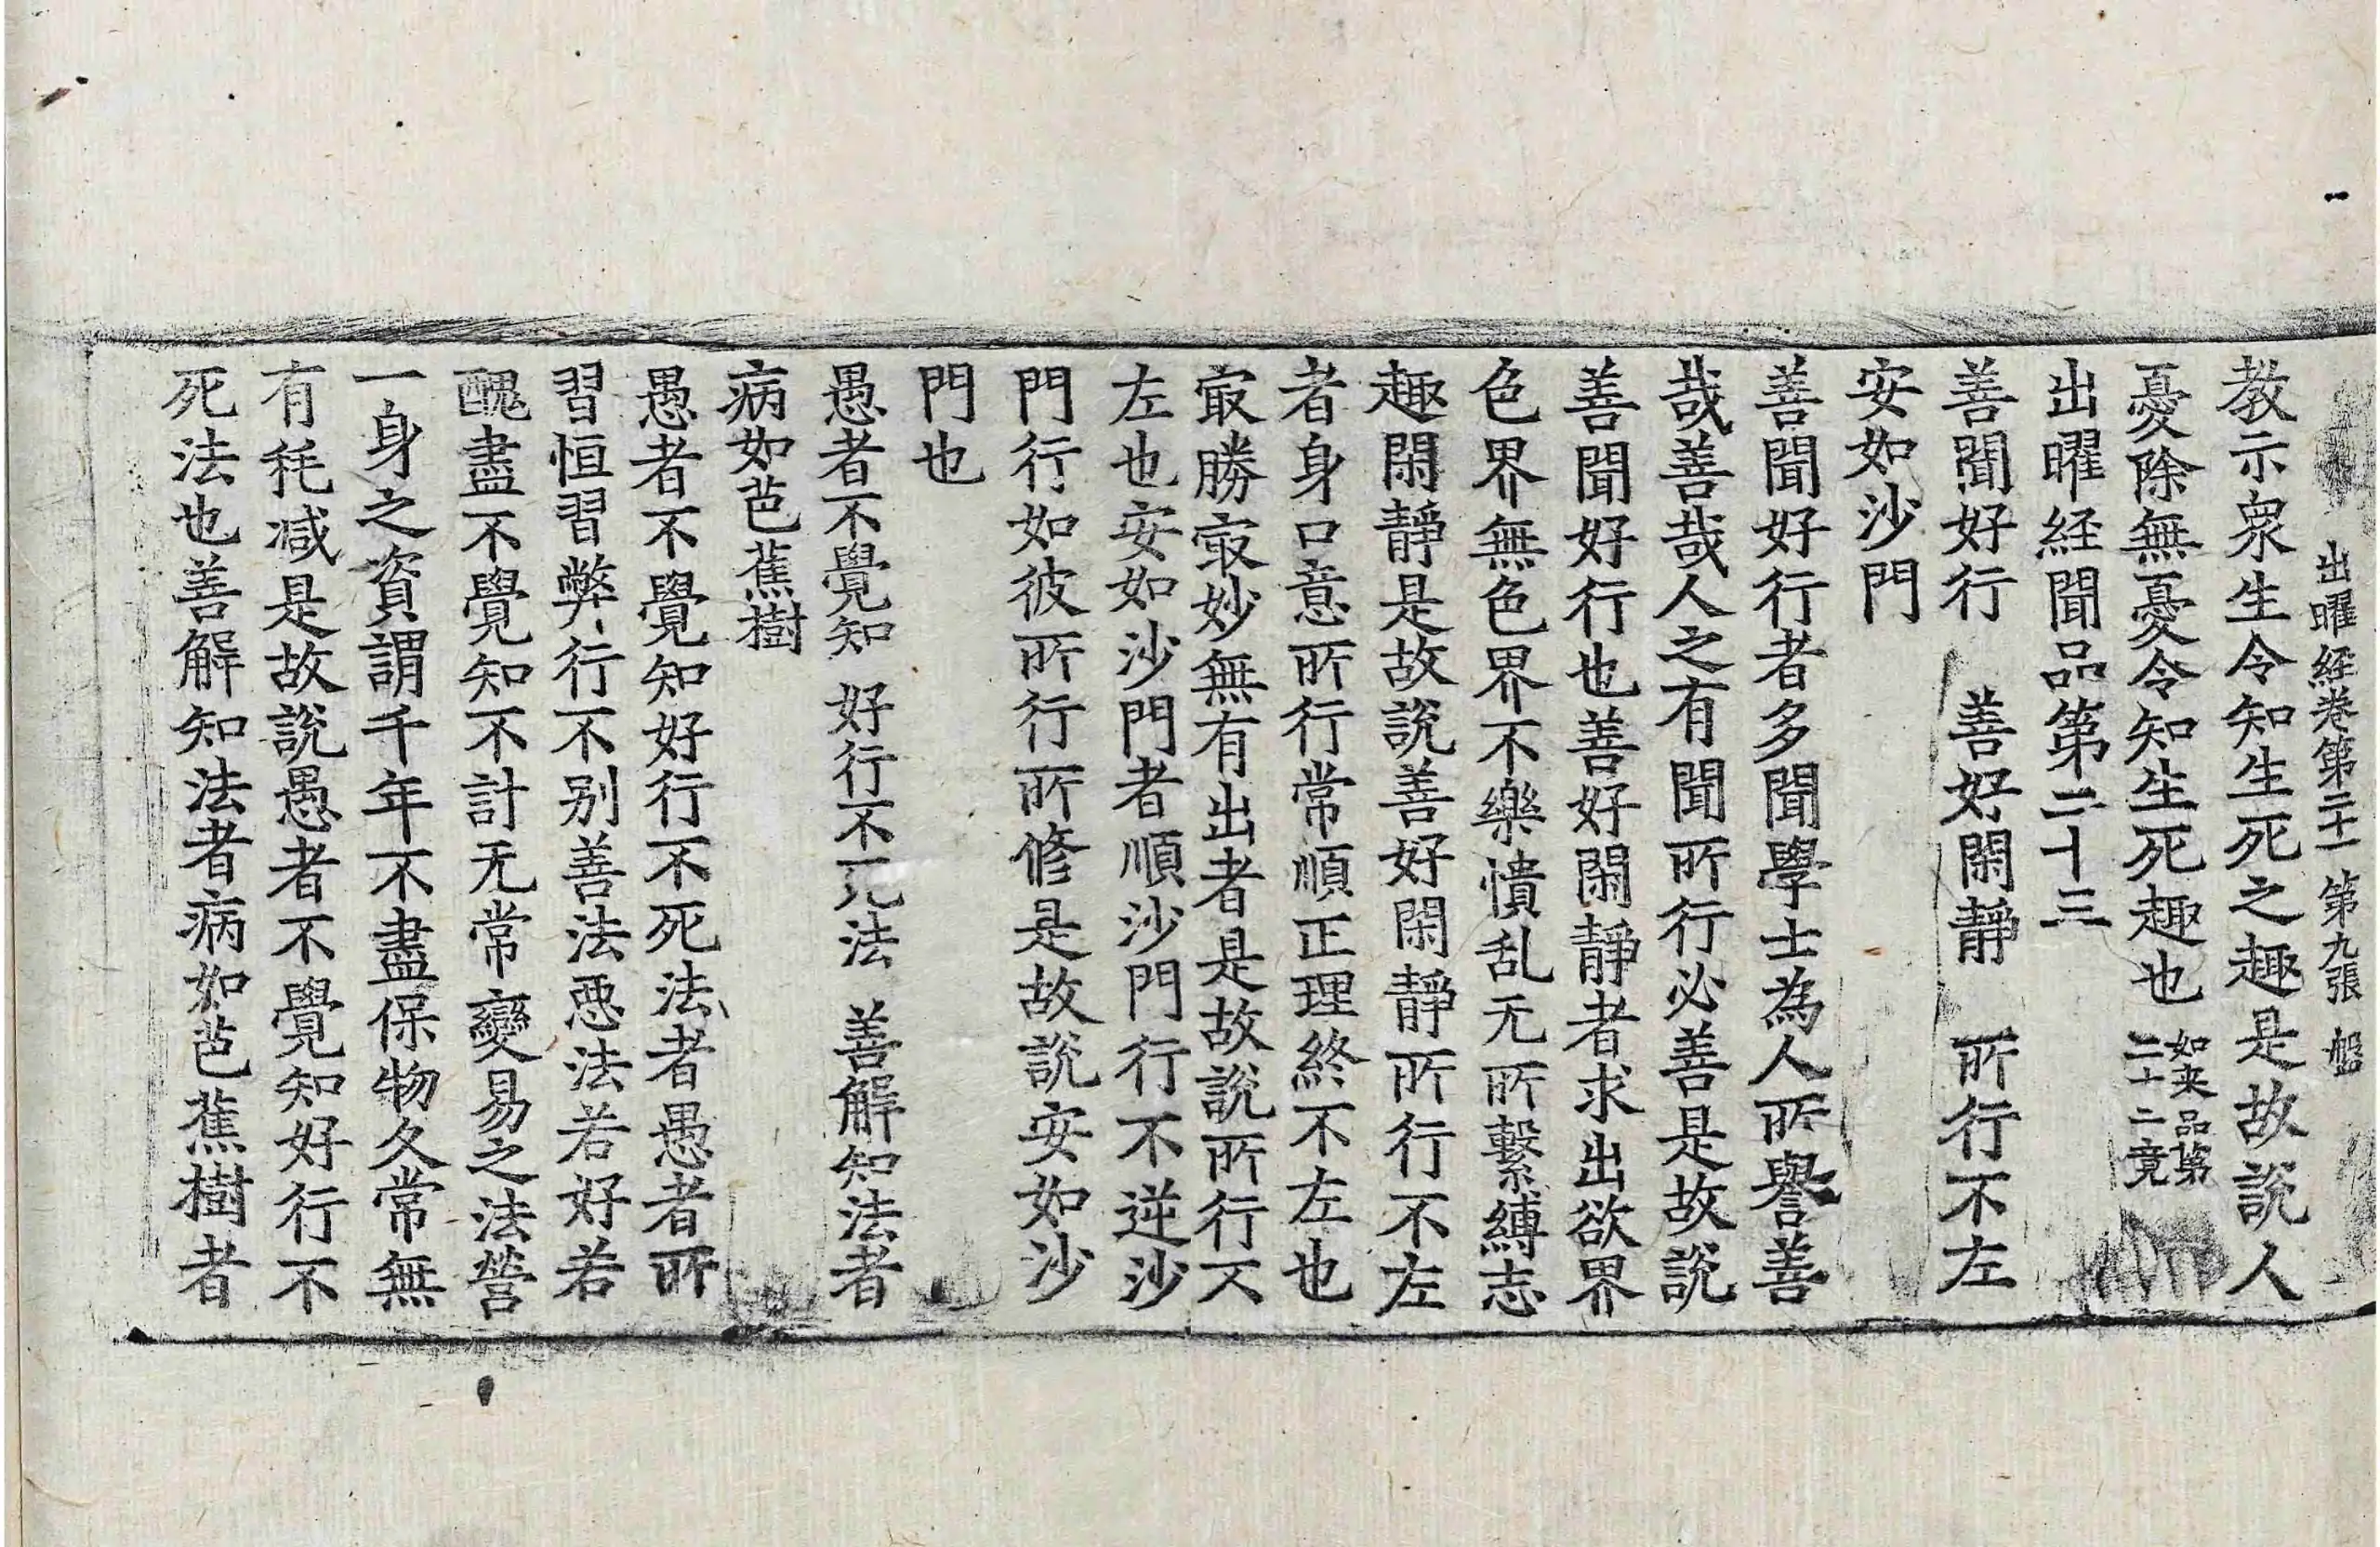 出曜経巻第二十一 第九張 盤
教示衆生令知生死之趣是故說人
憂除無憂令知生死趣也 如来品第
二十二竟
出曜経聞品第二十三
善聞好行 善好閑靜 所行不左
安如沙門
善聞好行者多聞學士為人所譽善
哉善哉人之有聞所行必善是故說
善聞好行也善好閑靜者求出欲界
色界無色界不樂憒乱无所繫縛志
趣閑靜是故說善好閑靜所行不左
者身口意所行常順正理終不左也
㝡勝㝡妙無有出者是故說所行不
左也安如沙門者順沙門行不逆沙
門行如彼所行所修是故說安如沙
門也
愚者不覺知 好行不死法 善解知法者
病如芭蕉樹
愚者不覺知好行不死法者愚者所
習恒習弊行不别善法惡法若好若
醜盡不覺知不計无常變易之法營
一身之資謂千年不盡保物久常無
有秏减是故說愚者不覺知好行不
死法也善解知法者病如芭蕉樹者